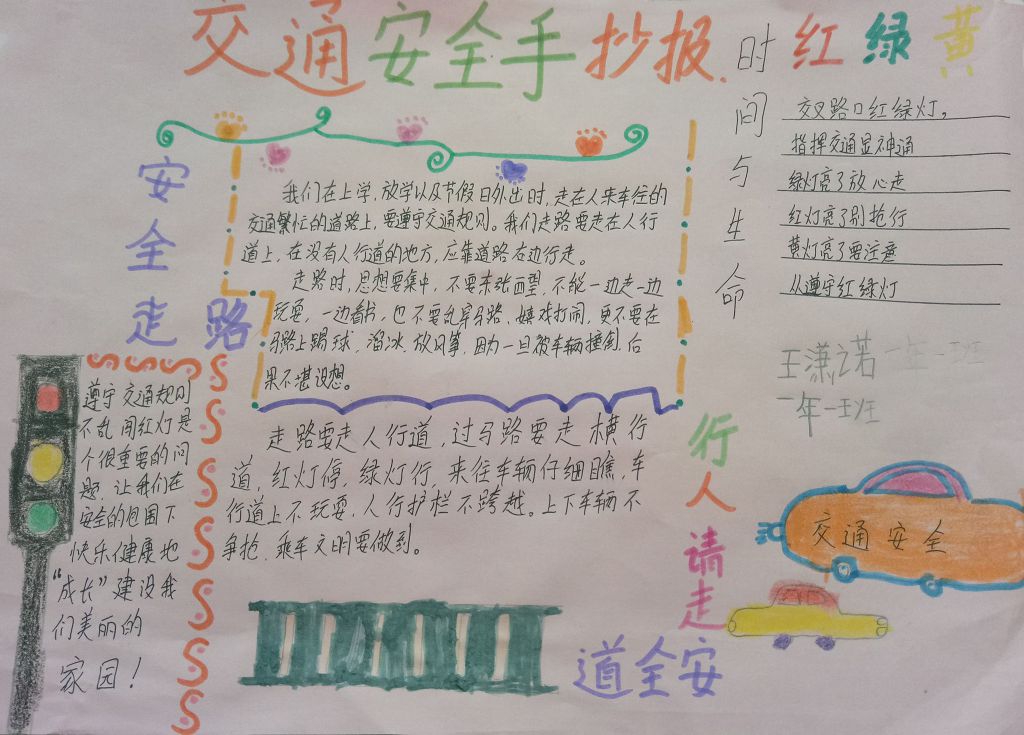 交通安全手抄报
红绿黄
时间与生命
交叉路口红绿灯,
指挥交通显神通
绿灯亮了放心走
红灯亮了别抢行
黄灯亮了要注意
从遵守红绿灯
王潇之若 一年一班
一年一班
安全走路
我们在上学,放学以及节假日外出时,走在人来车往的
交通繁忙的道路上,要遵守交通规则。我们走路要走在人行
道上,在没有人行道的地方,应靠道路右边行走。
走路时,思想要集中,不要东张西望,不能一边走一边
玩耍,一边看书,也不要乱穿马路、嬉戏打闹,更不要在
马路上踢球、溜冰、放风筝,因为一旦被车辆撞倒,后
果不堪设想。
走路要走人行道,过马路要走横行
道,红灯停,绿灯行,来往车辆仔细瞧,车
行道上不玩耍,人行护栏不跨越。上下车辆不
争抢,乘车文明要做到。
遵守交通规则
不乱闯红灯是
个很重要的问
题,让我们在
安全的包围下
快乐健康地
“成长”建设我
们美丽的
家园!
行人请走
道全安
交通安全